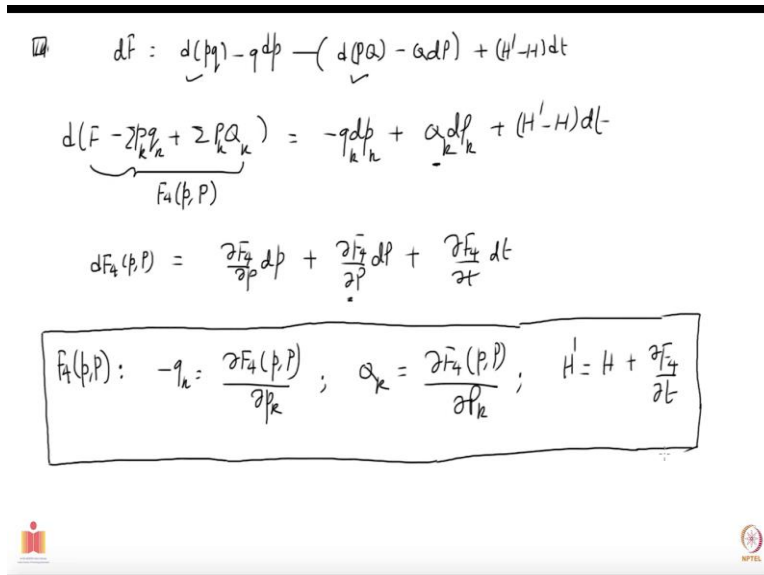 dF = d(pq) - qdp - (d(PQ) - QdP) + (H' - H)dt
d(F - Σp_k q_k + ΣP_k Q_k) = -q_k dp_k + Q_k dP_k + (H' - H)dt
F₄(p,P)
dF₄(p,P) = ∂F₄/∂p dp + ∂F₄/∂P dP + ∂F₄/∂t dt
F₄(p,P): -q_k = ∂F₄(p,P)/∂p_k ; Q_k = ∂F₄(p,P)/∂P_k ; H' = H + ∂F₄/∂t
NPTEL